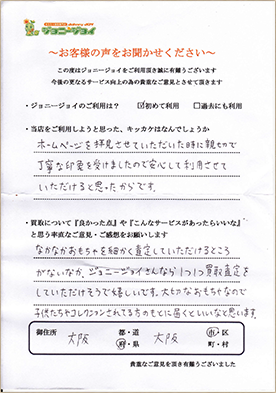 ジョニージョイ
～お客様の声をお聞かせください～
この度はジョニージョイをご利用頂き誠に有難うございます
今後の更なるサービス向上の為の貴重なご意見とさせて頂きます
・ジョニージョイのご利用は？ ☑初めて利用 □過去にも利用
・当店をご利用しようと思った、キッカケはなんでしょうか
ホームページを拝見させていただいた時に親切で
丁寧な印象を受けましたので安心して利用させて
いただけると思ったからです。
・買取について『良かった点』や『こんなサービスがあったらいいな』
と思う率直なご意見・ご感想をお願いします
なかなかおもちゃを細かく査定していただけるところ
がないなか、ジョニージョイさんなら1つ1つ買取査定を
していただけそうで嬉しいです。大切なおもちゃなので
子供たちやコレクションされてる方のもとに届くといいなと思います。
御住所 大阪 都・道・府・県 大阪 市・区・町・村
貴重なご意見を頂き有難うございました